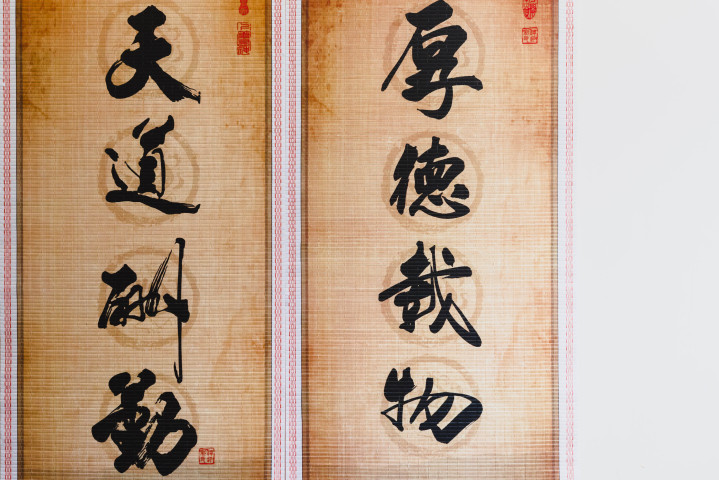 厚德載物
天道酬勤